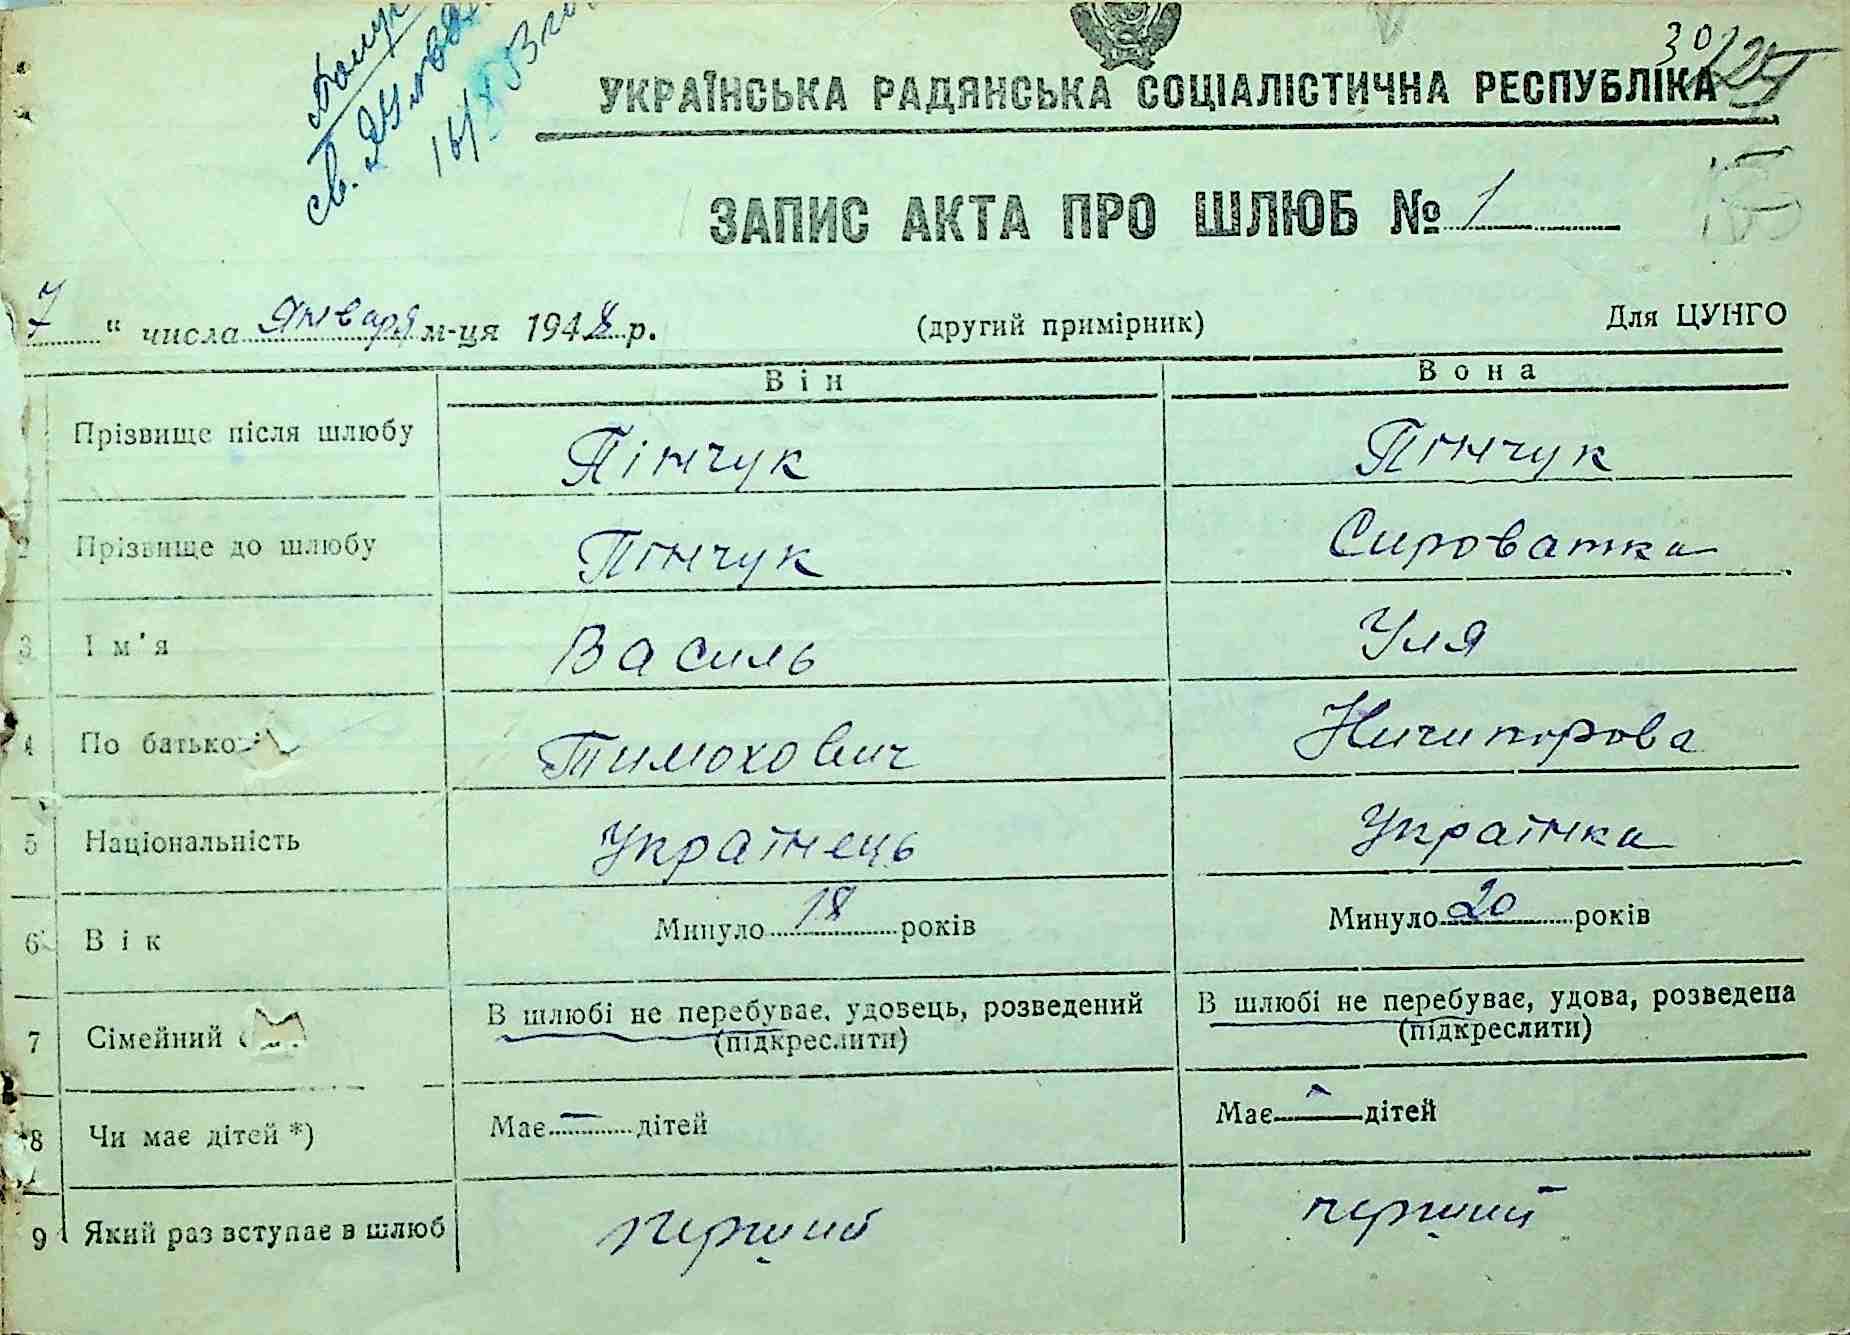 30
УКРАЇНСЬКА РАДЯНСЬКА СОЦІАЛІСТИЧНА РЕСПУБЛІКА
ЗАПИС АКТА ПРО ШЛЮБ № 1
7 " числа Января м-ця 1948 р. (другий примірник) Для ЦУНГО
Він Вона
1 Прізвище після шлюбу Пінчук Пінчук
2 Прізвище до шлюбу Пінчук Сироватка
3 Ім'я Василь Уля
4 По батькові Тимохович Ничипорова
5 Національність Українець Українка
6 Вік Минуло 18 років Минуло 20 років
7 Сімейний В шлюбі не перебуває, удовець, розведений В шлюбі не перебуває, удова, розведена
(підкреслити) (підкреслити)
8 Чи має дітей *) Має — дітей Має — дітей
9 Який раз вступає в шлюб перший перший